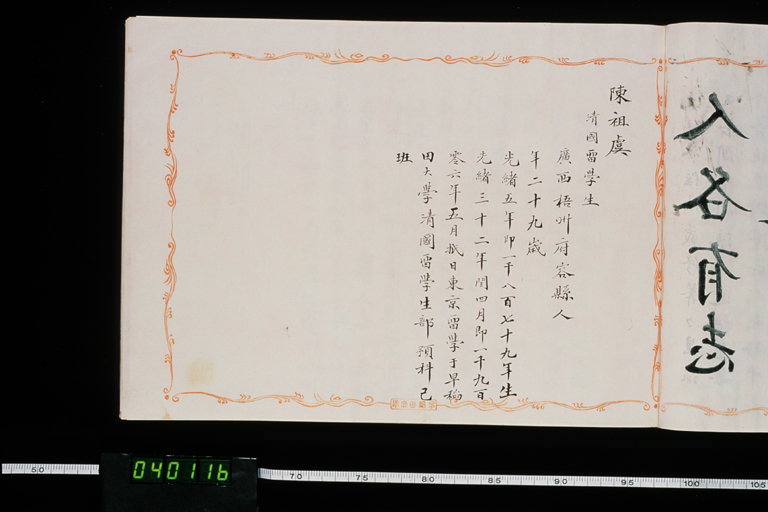 人各有志
陳祖虞
清國畱學生
廣西梧州府容縣人
年二十九歲
光緒五年即一千八百七十九年生
光緒三十二年閏四月即一千九百
零六年五月抵日東京畱學于早稻
田大學清國畱學生部預科己
班
040116
5.0
7.0
7.5
8.0
8.5
9.0
9.5
10.0
10.5